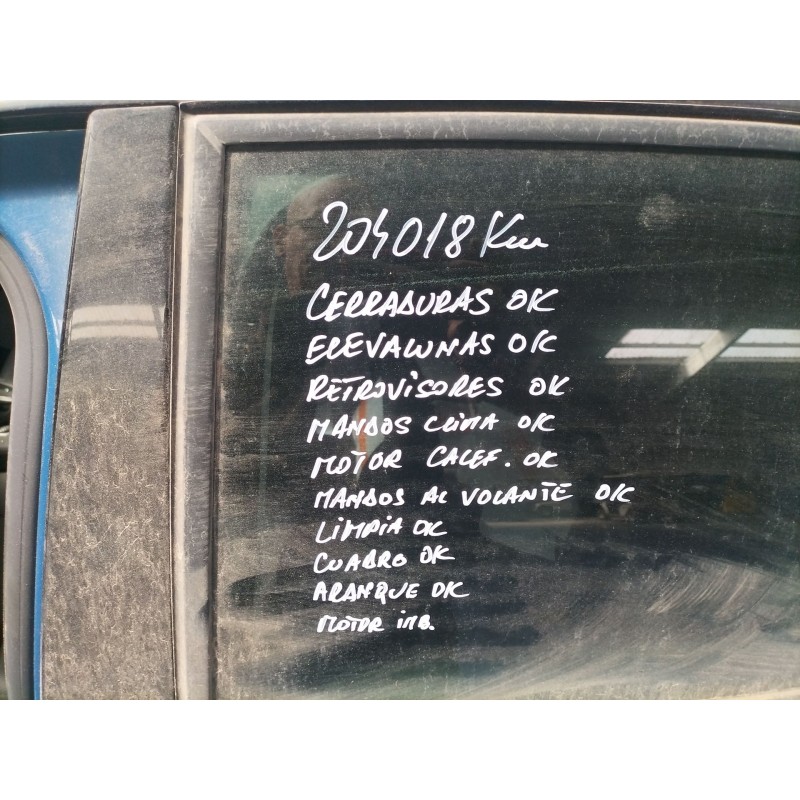 204018 Km
CERRADURAS OK
ELEVALUNAS OK
RETROVISORES OK
MANDOS CLIMA OK
MOTOR CALEF. OK
MANDOS AL VOLANTE OK
LIMPIA OK
CUADRO OK
ARANQUE OK
MOTOR